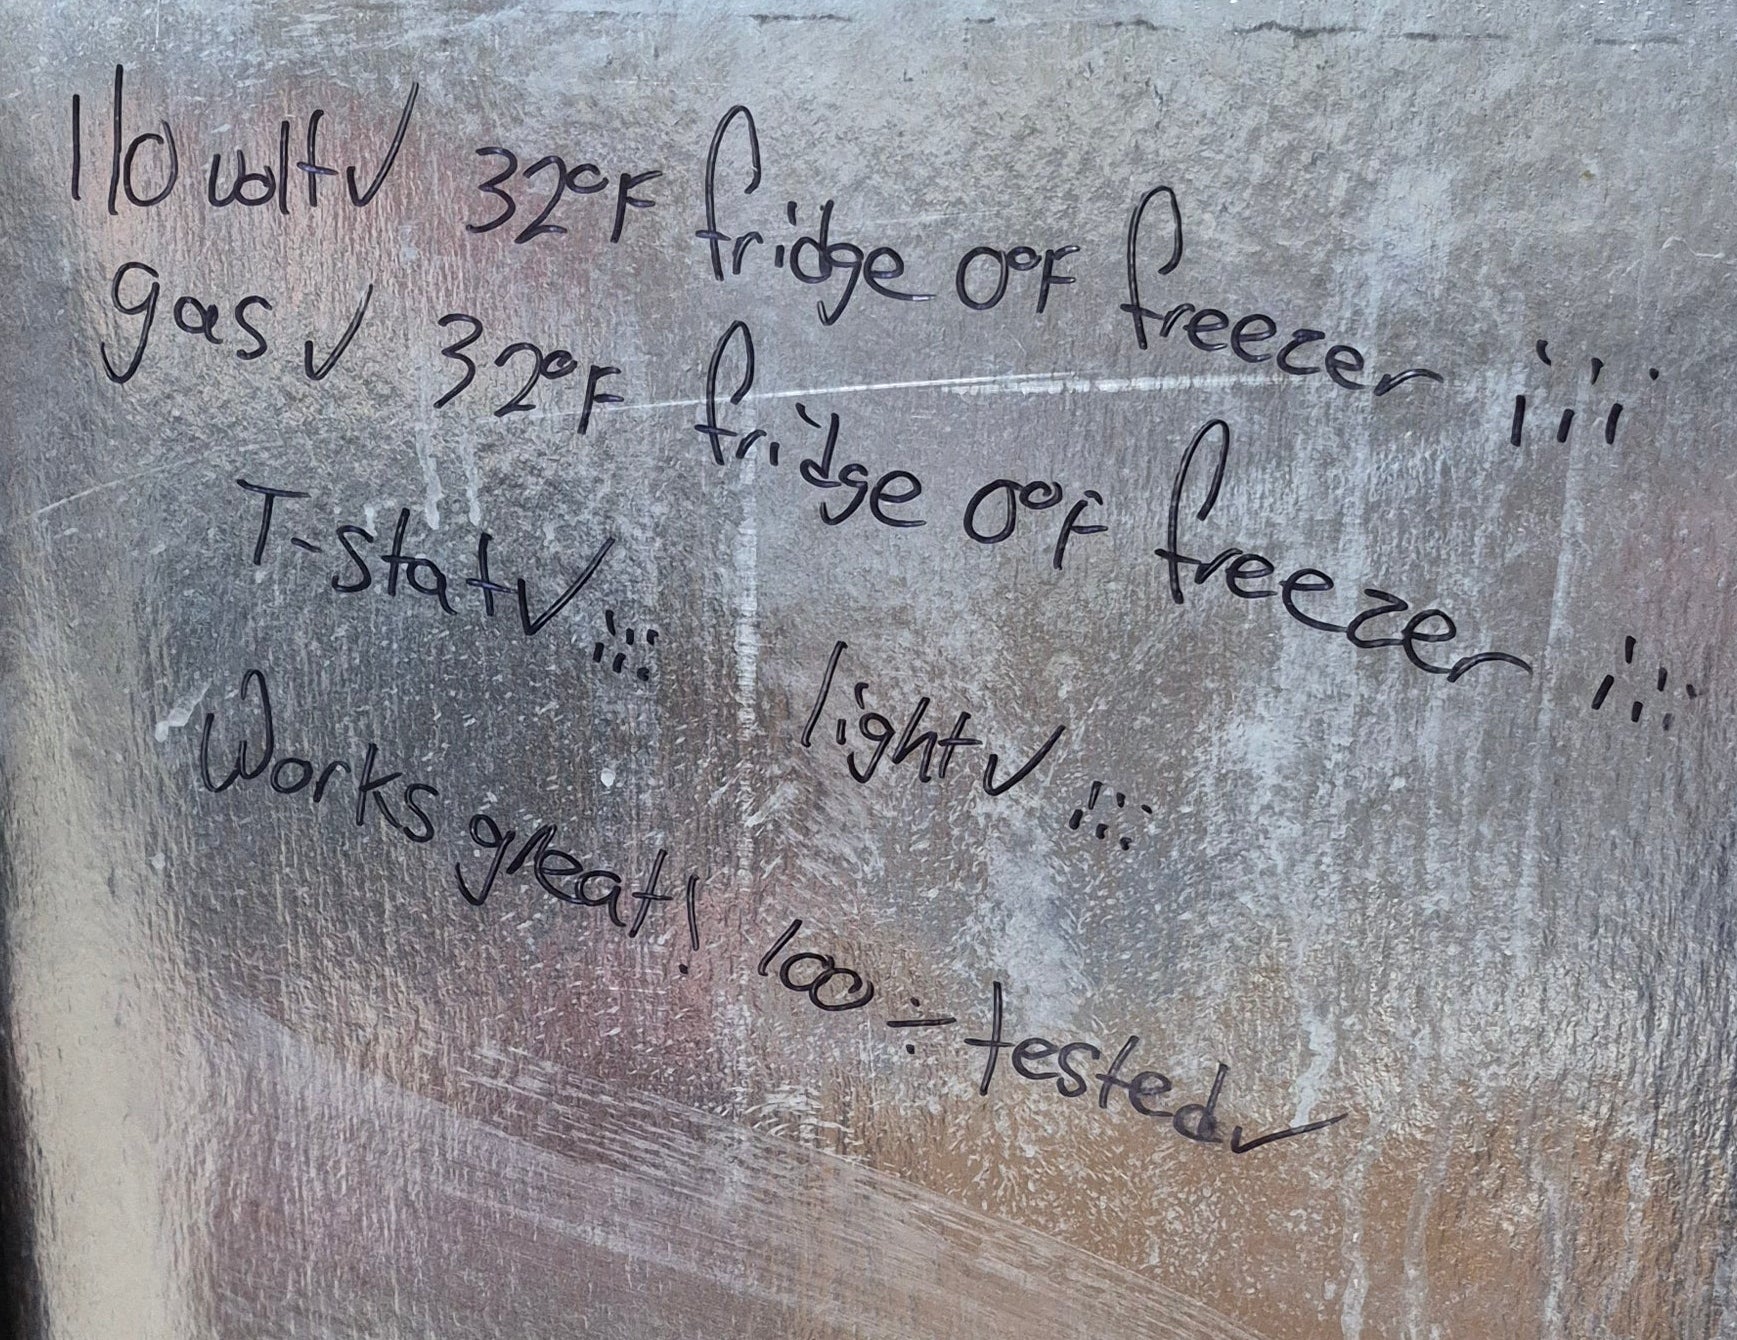 110 volt✓ 32°F fridge 0°F freezer iii
gas ✓ 32°F fridge 0°F freezer iii
T-stat✓ iii light✓ iii
Works great! 100 ÷ tested✓